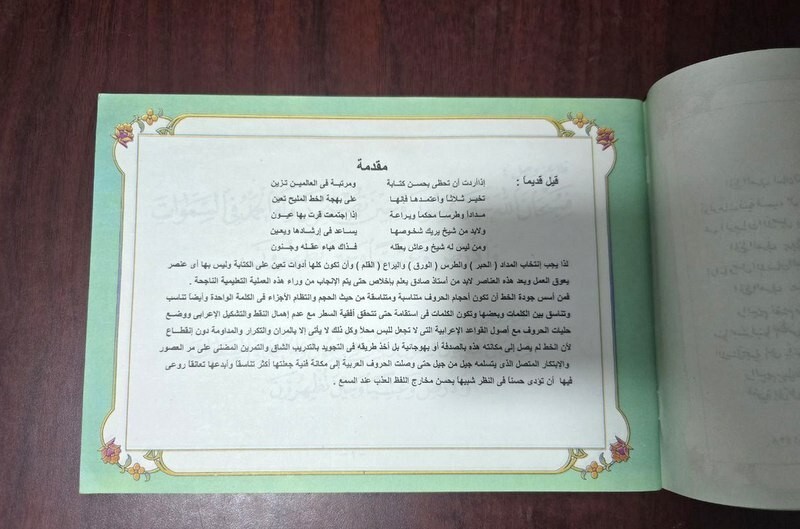 مقدمة
قيل قديماً : إذا أردت أن تحظى بحسن كتابة ومرتبة فى العالمين تزين
تخير ثلاثاً وأعتمدها فإنها على بهجة الخط المليح تعين
مداداً وطرساً محكماً ويراعة إذا إجتمعت قرت بها عيون
ولابد من شيخ يريك شخوصها يساعد فى إرشادها ويعين
ومن ليس له شيخ وعاش بعقله فذاك هباء عقله وجنون
لذا يجب إنتخاب المداد ( الحبر ) والطرس ( الورق ) واليراع ( القلم ) وأن تكون كلها أدوات تعين على الكتابة وليس بها أى عنصر
يعوق العمل وبعد هذه العناصر لابد من أستاذ صادق يعلم بإخلاص حتى يتم الإنجاب من وراء هذه العملية التعليمية الناجحة .
فمن أسس جودة الخط أن تكون أحجام الحروف متناسبة ومتناسقة من حيث الحجم وانتظام الأجزاء فى الكلمة الواحدة وأيضاً تناسب
وتناسق بين الكلمات وبعضها وتكون الكلمات فى استقامة حتى تتحقق أفقية السطر مع عدم إهمال النقط والتشكيل الإعرابى ووضع
حليات الحروف مع أصول القواعد الإعرابية التى لا تجعل للبس محلاً وكل ذلك لا يأتى إلا بالمران والتكرار والمداومة دون إنقطاع
لأن الخط لم يصل إلى مكانته هذه بالصدفة أو بهوجانية بل أخذ طريقه فى التجويد بالتدريب الشاق والتمرين المضنى على مر العصور
والابتكار المتصل الذى يتسلمه جيل من جيل حتى وصلت الحروف العربية إلى مكانة فنية جعلتها أكثر تناسقاً وأبدعها تعانقاً روعى
فيها أن تؤدى حسناً فى النظر شبيهاً بحسن مخارج اللفظ العذب عند السمع .